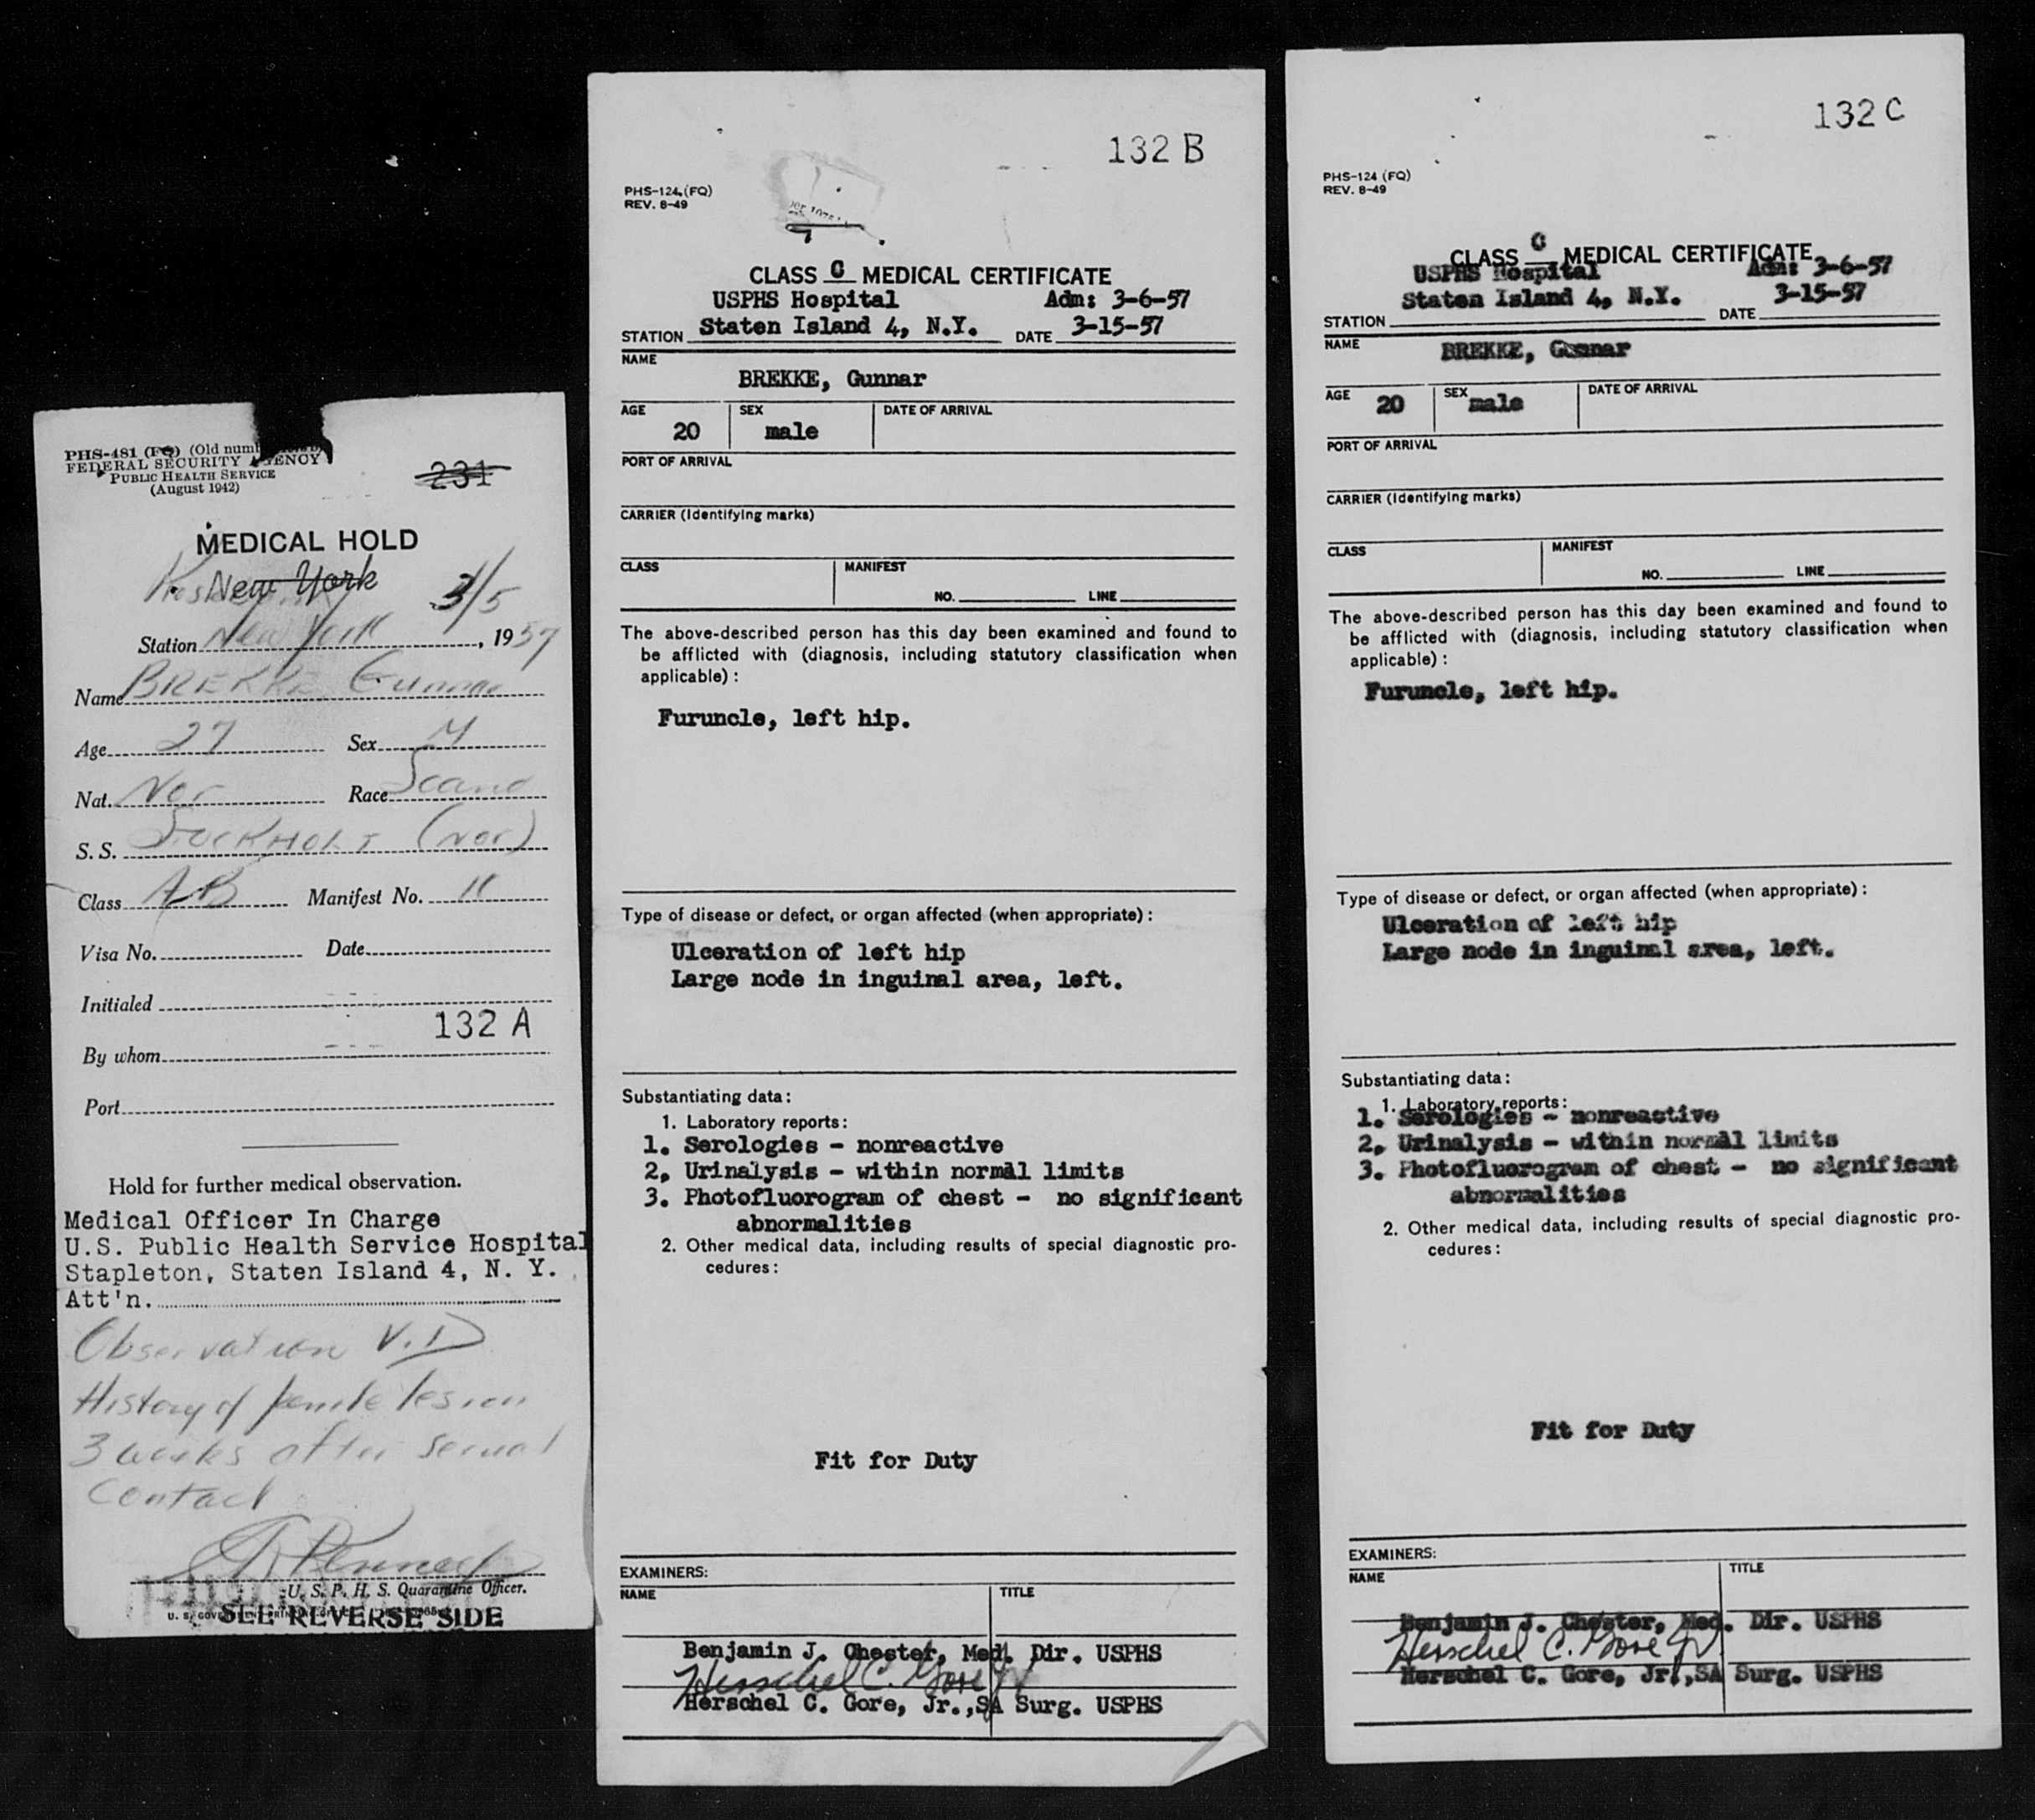 PHS-481 (FQ) (Old num
FEDERAL SECURITY AGENCY
PUBLIC HEALTH SERVICE
(August 1942)
231
MEDICAL HOLD
New York
3/5
Station New York, 1957
Name BREKKE, Gunnar
Age 27 Sex M
Nat. Nor Race Scand
S. S. (Nor)
Class AB Manifest No. 11
Visa No. Date
Initialed
132 A
By whom
Port
Hold for further medical observation.
Medical Officer In Charge
U.S. Public Health Service Hospital
Stapleton, Staten Island 4, N. Y.
Att'n.
Observation V.D
History of penile lesion
3 weeks after sexual
contact
U. S. P. H. S. Quarantine Officer.
SEE REVERSE SIDE
132 B
PHS-124 (FQ)
REV. 8-49
CLASS C MEDICAL CERTIFICATE
USPHS Hospital Adm: 3-6-57
STATION Staten Island 4, N.Y. DATE 3-15-57
NAME
BREKKE, Gunnar
AGE SEX DATE OF ARRIVAL
20 male
PORT OF ARRIVAL
CARRIER (Identifying marks)
CLASS MANIFEST
NO. LINE
The above-described person has this day been examined and found to
be afflicted with (diagnosis, including statutory classification when
applicable) :
Furuncle, left hip.
Type of disease or defect, or organ affected (when appropriate) :
Ulceration of left hip
Large node in inguinal area, left.
Substantiating data :
1. Laboratory reports :
1. Serologies - nonreactive
2. Urinalysis - within normal limits
3. Photofluorogram of chest - no significant
abnormalities
2. Other medical data, including results of special diagnostic pro-
cedures :
Fit for Duty
EXAMINERS:
NAME TITLE
Benjamin J. Chester, Med. Dir. USPHS
Herschel C. Gore Jr
Herschel C. Gore, Jr.,SA Surg. USPHS
132 C
PHS-124 (FQ)
REV. 8-49
CLASS C MEDICAL CERTIFICATE
USPHS Hospital Adm: 3-6-57
Staten Island 4, N.Y. 3-15-57
STATION DATE
NAME
BREKKE, Gunnar
AGE 20 SEX male DATE OF ARRIVAL
PORT OF ARRIVAL
CARRIER (Identifying marks)
CLASS MANIFEST
NO. LINE
The above-described person has this day been examined and found to
be afflicted with (diagnosis, including statutory classification when
applicable) :
Furuncle, left hip.
Type of disease or defect, or organ affected (when appropriate) :
Ulceration of left hip
Large node in inguinal area, left.
Substantiating data :
1. Laboratory reports :
1. Serologies - nonreactive
2. Urinalysis - within normal limits
3. Photofluorogram of chest - no significant
abnormalities
2. Other medical data, including results of special diagnostic pro-
cedures :
Fit for Duty
EXAMINERS:
NAME TITLE
Benjamin J. Chester, Med. Dir. USPHS
Herschel C. Gore Jr
Herschel C. Gore, Jr.,SA Surg. USPHS